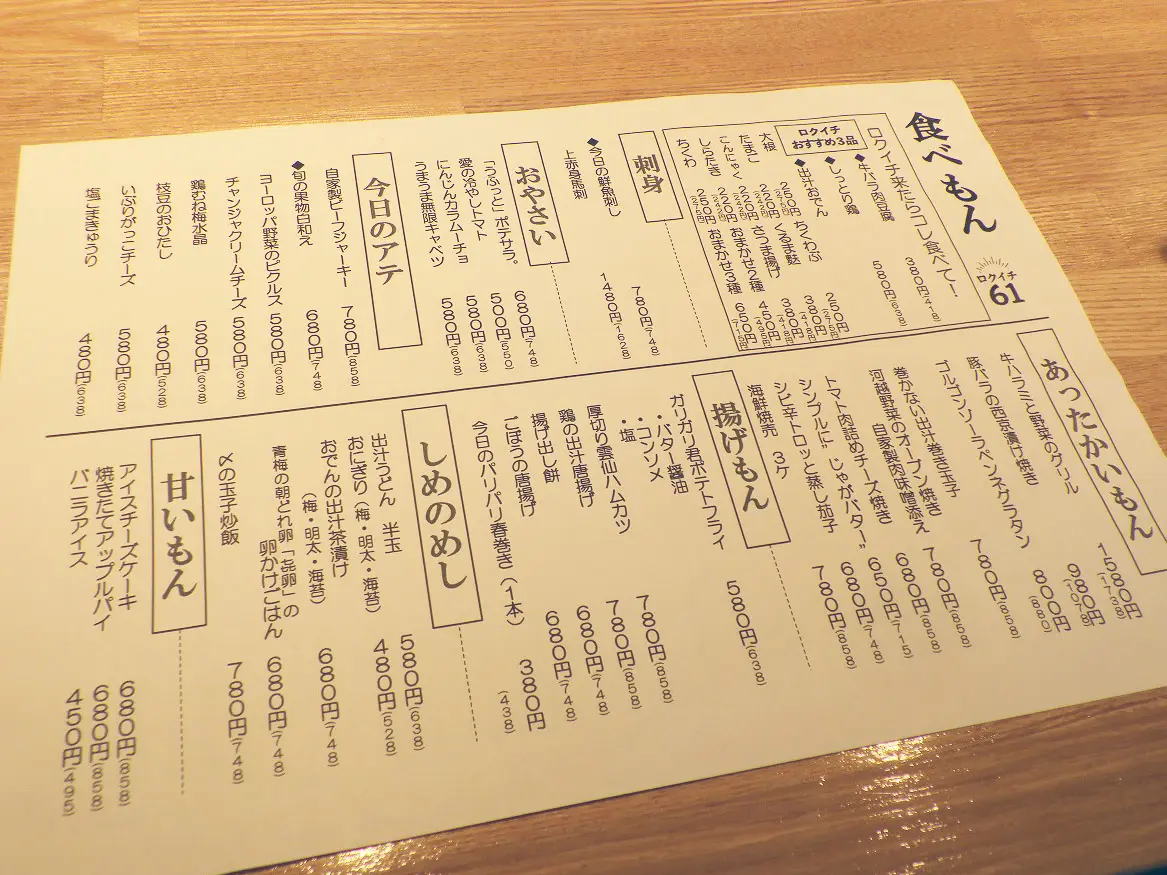 食べもん
ロクイチ
61
ロクイチ来たらコレ食べて！
ロクイチ
おすすめ3品
◆牛バラ肉豆腐 380円(418)
◆しっとり鶏 580円(638)
◆出汁おでん
大根 250円(275)
たまご 220円(242)
こんにゃく 220円(242)
しらたき 220円(242)
ちくわ 250円(275)
ちくわぶ 250円(275)
くるま麩 380円(418)
さつま揚げ 380円(418)
おまかせ2種 450円(495)
おまかせ3種 650円(715)
刺身
◆今日の鮮魚刺し 780円(748)
上赤身馬刺 1480円(1628)
おやさい
「つぶっと」ポテサラ。 680円(748)
愛の冷やしトマト 500円(550)
にんじんカラムーチョ 580円(638)
うまうま無限キャベツ 580円(638)
今日のアテ
自家製ビーフジャーキー 780円(858)
◆旬の果物白和え 680円(748)
ヨーロッパ野菜のピクルス 580円(638)
チャンジャクリームチーズ 580円(638)
鶏むね梅水晶 580円(638)
枝豆のおひたし 480円(528)
いぶりがっこチーズ 580円(638)
塩ごまきゅうり 480円(638)
あったかいもん
牛ハラミと野菜のグリル 1580円(1738)
豚バラの西京漬け焼き 980円(1078)
ゴルゴンゾーラペンネグラタン 800円(880)
巻かない出汁巻き玉子 780円(858)
河越野菜のオーブン焼き
自家製肉味噌添え 780円(858)
トマト肉詰めチーズ焼き 680円(858)
シンプルに”じゃがバター” 650円(715)
シビ辛トロッと蒸し茄子 680円(748)
海鮮焼売 3ケ 780円(858)
揚げもん
ガリガリ君ポテトフライ 580円(638)
・バター醤油
・コンソメ
・塩
厚切り雲仙ハムカツ 780円(858)
鶏の出汁唐揚げ 780円(858)
揚げ出し餅 680円(748)
ごぼうの唐揚げ 680円(748)
今日のパリパリ春巻き(1本) 380円(438)
しめのめし
出汁うどん 半玉 580円(638)
おにぎり(梅・明太・海苔) 480円(528)
おでんの出汁茶漬け
(梅・明太・海苔) 680円(748)
青梅の朝どれ卵「㐂卵」の
卵かけごはん 680円(748)
〆の玉子炒飯 780円(748)
甘いもん
アイスチーズケーキ 680円(858)
焼きたてアップルパイ 680円(858)
バニラアイス 450円(495)